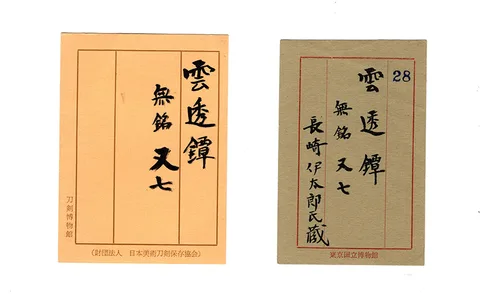 雲透鐔
無銘 又七
刀剣博物館
(財団法人 日本美術刀剣保存協会)
28
雲透鐔
無銘 又七
長崎伊太郎氏蔵
東京国立博物館